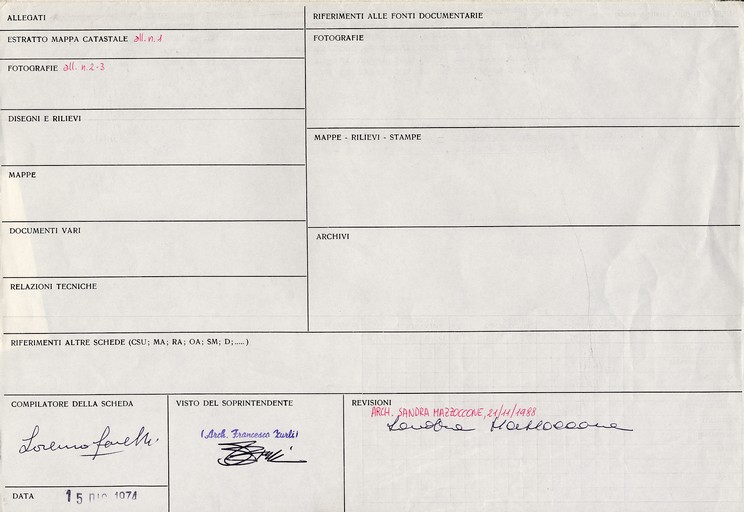 ALLEGATI
ESTRATTO MAPPA CATASTALE all. n. 1
FOTOGRAFIE all. n. 2-3
DISEGNI E RILIEVI
MAPPE
DOCUMENTI VARI
RELAZIONI TECNICHE
RIFERIMENTI ALLE FONTI DOCUMENTARIE
FOTOGRAFIE
MAPPE - RILIEVI - STAMPE
ARCHIVI
RIFERIMENTI ALTRE SCHEDE (CSU; MA; RA; OA; SM; D;.....)
COMPILATORE DELLA SCHEDA
Lorenzo
DATA 15 DIC 1974
VISTO DEL SOPRINTENDENTE
(Arch. Francesco Zurli)
REVISIONI
ARCH. SANDRA MAZZOCCONE, 21/11/1988
Sandra Mazzoccone